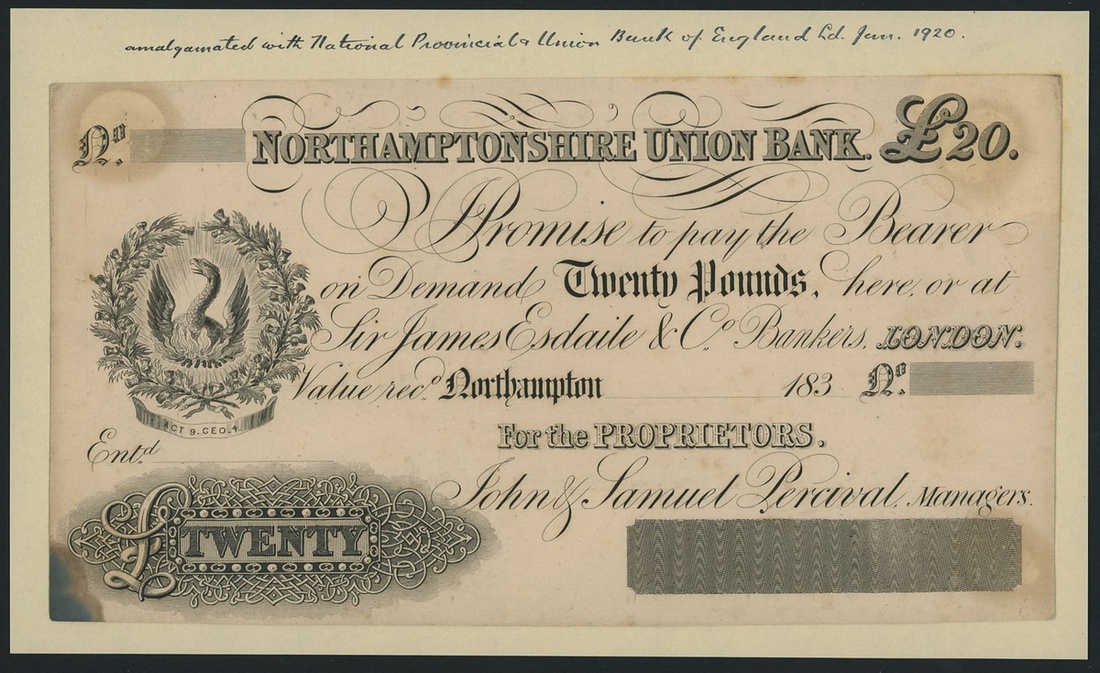 amalgamated with National Provincial & Union Bank of England Ld. Jan. 1920.
No. NORTHAMPTONSHIRE UNION BANK. £20.
I Promise to pay the Bearer
on Demand Twenty Pounds, here, or at
Sir James Esdaile & Co. Bankers, LONDON.
Value recd. Northampton 183 No.
ACT 9. GEO. 4.
For the PROPRIETORS.
Entd.
John & Samuel Percival, Managers.
£ TWENTY